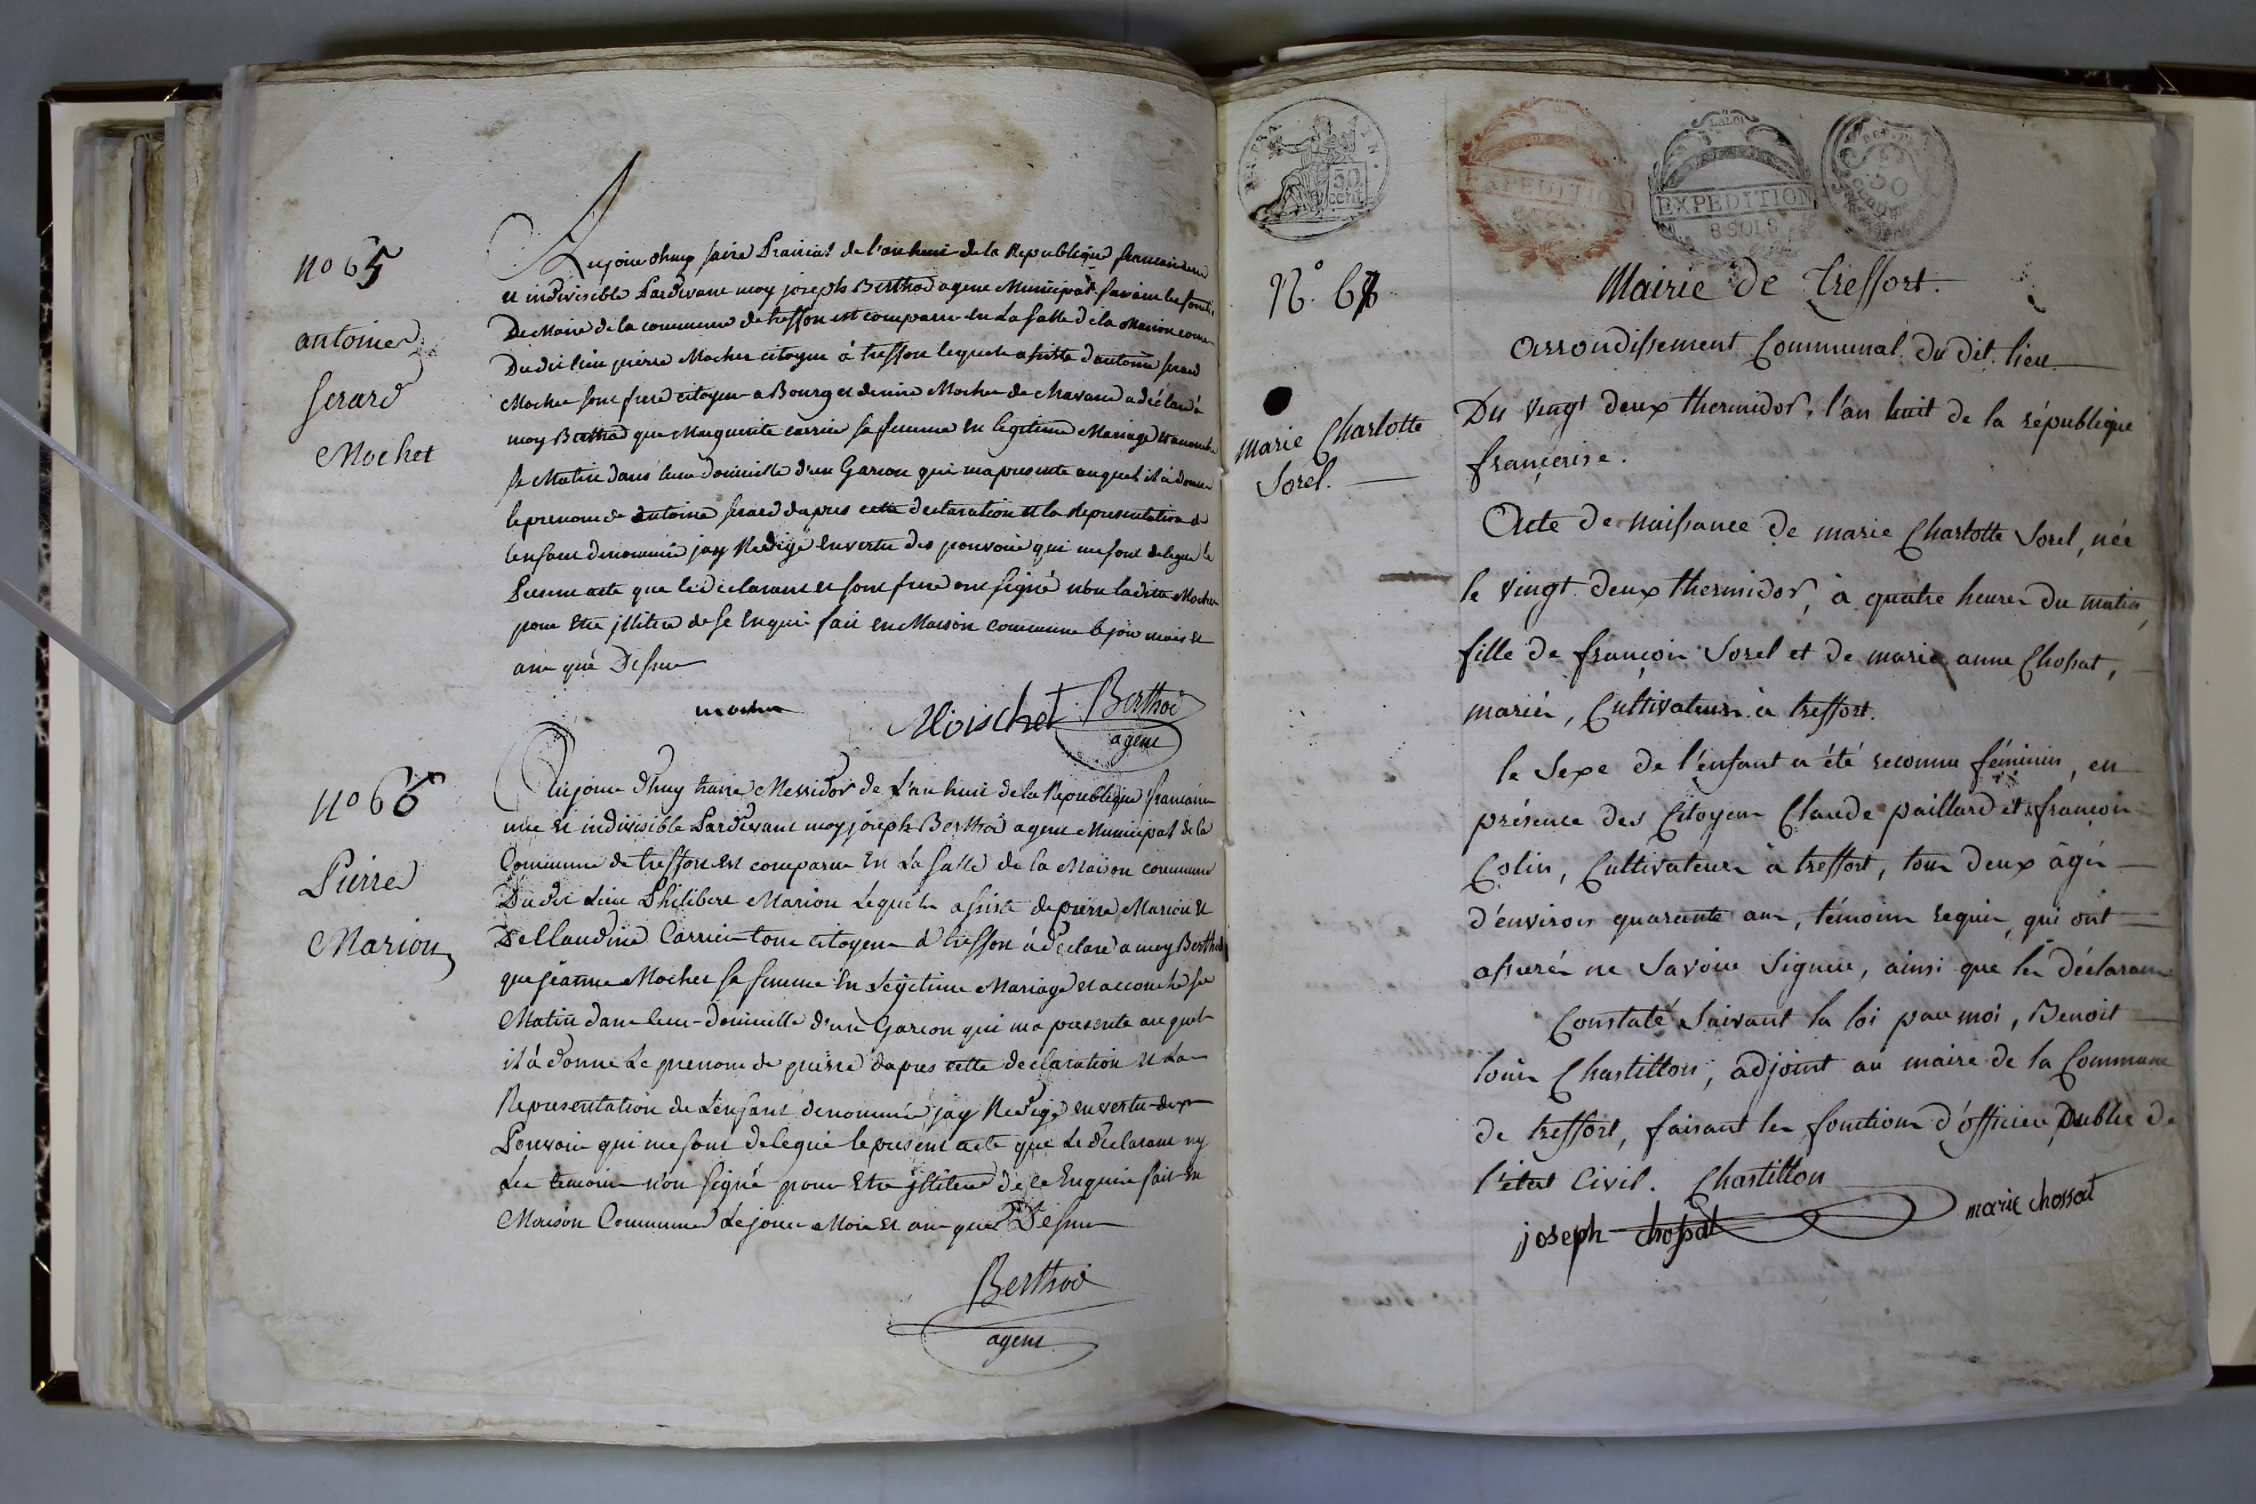 n° 65
antoine
ferard
Mochet
Aujourdhuy saize Prairial de l'an huit de la Republique francaise une
et indivisible Pardevant moy joseph Berthod agent Municipal faisant les fonct.
De Maire de la commune de treffort est comparu en La salle de la Maison comm
Du dit lieu pierre Mochet citoyen à treffort lequel assisté d'antoine ferard
Mochet sont frere citoyen a Bourg et denise Mochet de chavane a déclaré à
moy Berthod que Marguerite carrier sa femme en legitime Mariage est accouché
se Matin dans leur domicille d'un Garcon qui ma presenté auquel il à donné
le prenom de antoine ferard dapres cette declaration et la Representation de
lenfant denommé jay Redigé en vertu des pouvoir qui me sont delegué le
Present acte que le declarant et sont frere ont signé non laditte Mochet
pour etre jllitere de se Enquis fait en Maison commune le jour mois et
an que Dessus
mochet
Moischet Berthod
agent
n° 66
Pierre
Marion
Aujourdhuy traize Messidor de L'an huit de la Republique francaise
une et indivisible Pardevant moy joseph Berthod agent Municipal de la
Commune de treffort est comparu En La salle de la Maison commune
Du dit Lieu Philibert Marion Lequel assisté de pierre Marion et
De Claudine Carrier tous citoyen d treffort à déclaré a moy Berthod
que jeanne Mochet sa femme En Légitime Mariage est accouché se
Matin dans leur domicille d'un Garcon qui ma presenté auquel
il à donné Le prenom de pierre dapres cette declaration et La
Representation de L'enfant denommé jay Redigé en vertu des
Pouvoir qui me sont delegué le present acte que Le declarant ny
Les temoins n'on signé pour Etre jllitere de ce Enquis fait en
Maison Commune Le jour Mois et an que Dessus
Berthod
agent
50
cent
EXPEDITION
LA LOI
EXPEDITION
8 SOLS
50
N° 67
Mairie de Treffort.
Arrondissement Communal du dit lieu
marie Charlotte
Sorel.
Du vingt deux thermidor, l'an huit de la république
françoise.
Acte de naissance de marie Charlotte Sorel, née
le vingt deux thermidor, à quatre heures du matin,
fille de françois Sorel et de marie anne Chossat,
mariés, Cultivateurs à treffort.
le Sexe de l'enfant a été reconnu féminin, en
présence des Citoyens Claude paillard et françois
Colin, Cultivateurs à treffort, tous deux âgés
d'environ quarante ans, témoins requis, qui ont
assuré ne Savoir Signer, ainsi que les déclarans
Constaté Suivant la loi par moi, Benoit
louis Chastillon, adjoint au maire de la Commune
de treffort, faisant les fonctions d'officier public de
l'état Civil. Chastillon
joseph chossat marie chossat